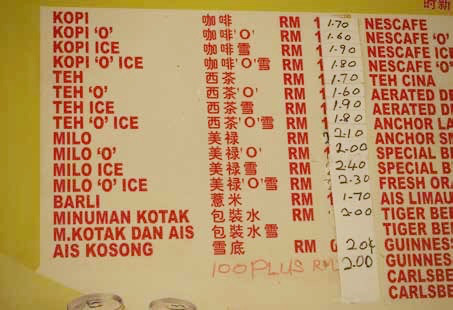 时新
KOPI 咖啡 RM 1 1.70 NESCAFE
KOPI 'O' 咖啡'O' RM 1 1.60 NESCAFE 'O'
KOPI ICE 咖啡雪 RM 1 1.90 NESCAFE ICE
KOPI 'O' ICE 咖啡'O'雪 RM 1 1.80 NESCAFE 'O'
TEH 西茶 RM 1 1.70 TEH CINA
TEH 'O' 西茶'O' RM 1 1.60 AERATED
TEH ICE 西茶雪 RM 1 1.90 AERATED
TEH 'O' ICE 西茶'O'雪 RM 1 1.80 ANCHOR
MILO 美禄 RM 2.10 ANCHOR
MILO 'O' 美禄'O' RM 2.00 SPECIAL
MILO ICE 美禄雪 RM 2.40 SPECIAL
MILO 'O' ICE 美禄'O'雪 RM 2.30 FRESH
BARLI 薏米 RM 1.70 AIS LIMAU
MINUMAN KOTAK 包裝水 RM 2.00 TIGER
M.KOTAK DAN AIS 包裝水雪 TIGER
AIS KOSONG 雪底 RM 0 20¢ GUINNESS
100 PLUS RM 2.00 GUINNESS
CARLSBE
CARLSBE